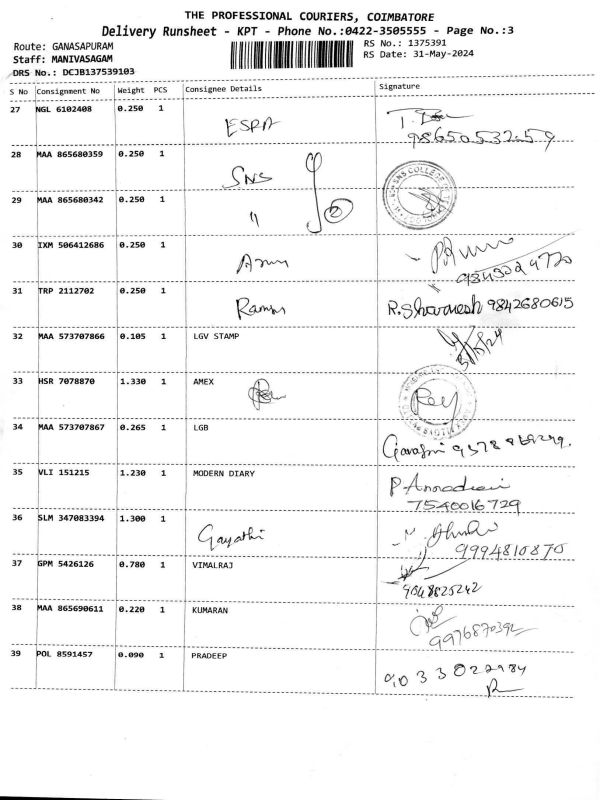 THE PROFESSIONAL COURIERS, COIMBATORE
Delivery Runsheet - KPT - Phone No.:0422-3505555 - Page No.:3
Route: GANASAPURAM
RS No.: 1375391
Staff: MANIVASAGAM
RS Date: 31-May-2024
DRS No.: DCJB137539103
S No Consignment No Weight PCS Consignee Details Signature
27 NGL 6102408 0.250 1 ESRA
9865053259
28 MAA 865680359 0.250 1 SNS
SNS COLLEGE
29 MAA 865680342 0.250 1 "
30 IXM 506412686 0.250 1
31 TRP 2112702 0.250 1 R.Sharvesh 9842680615
32 MAA 573707866 0.105 1 LGV STAMP
31/5/24
33 HSR 7078870 1.330 1 AMEX
34 MAA 573707867 0.265 1 LGB
35 VLI 151215 1.230 1 MODERN DIARY
7540016729
36 SLM 347083394 1.300 1 Gayathi
9994810870
37 GPM 5426126 0.780 1 VIMALRAJ
38 MAA 865690611 0.220 1 KUMARAN
39 POL 8591457 0.090 1 PRADEEP
9033022984